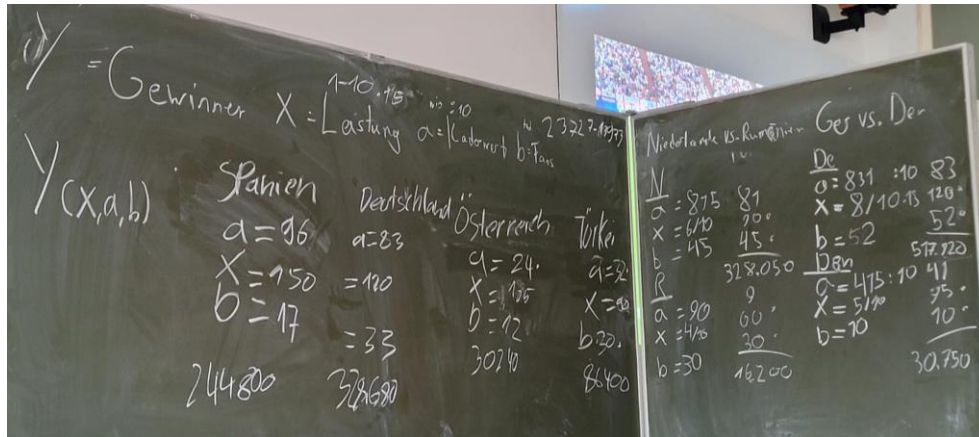 Y = Gewinner
1-10 · 15
X = Leistung a = Kaderwert b = Fans
Y(x,a,b)
Spanien
a = 96
x = 150
b = 17
244800
Deutschland
a = 83
= 120
= 33
328680
Österreich
a = 24 ·
b = 12
30240
Türkei
b 20 ·
86400
Niederlande vs. Rumänien
N
a = 815 81
x = 6/10
b = 45 45 ·
328.050
R
9
a = 90 60 ·
x = 4/10 30 ·
b = 30 16200
Ger vs. Den
De
a = 831 :10 83
x = 8/10·15 120 ·
b = 52 52 ·
517.920
Den
a = 415 :10 41
x = 5/10 75 ·
b = 10 10 ·
30.750